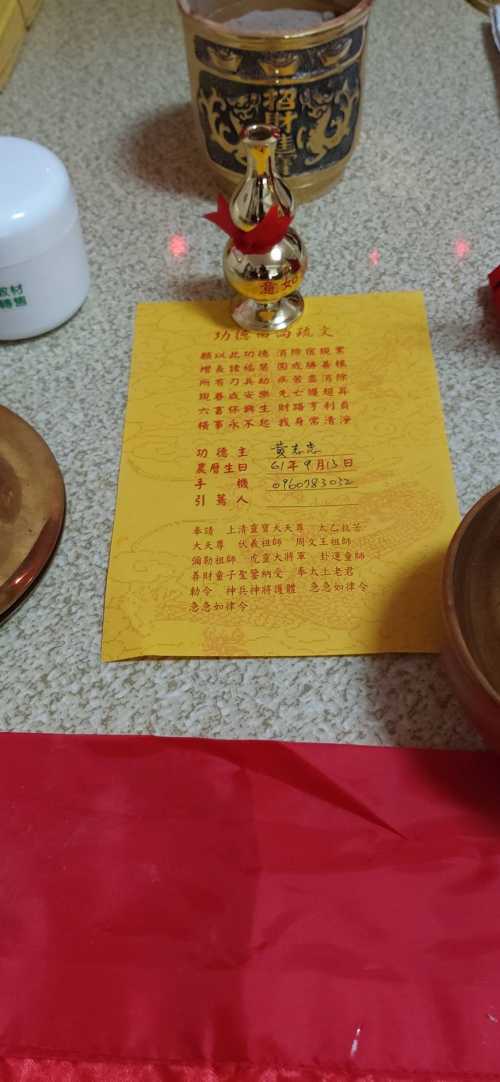 招財進寶
如意
教材
轉售
功德 疏文
願以此功德 消除宿現業
增長諸福慧 圓成勝善根
所有刀兵劫 疾苦盡消除
現眷成安樂 先亡獲超昇
六畜保興生 財路亨利貞
橫事永不起 我身常清淨
功德主 黃志忠
農曆生日 61年9月13日
手機 0960783032
引薦人
奉請 上清靈寶大天尊 太乙救苦
大天尊 伏羲祖師 周文王祖師
彌勒祖師 虎靈大將軍 卦運童師
善財童子聖鑒納受 奉太上老君
勅令 神兵神將護體 急急如律令
急急如律令